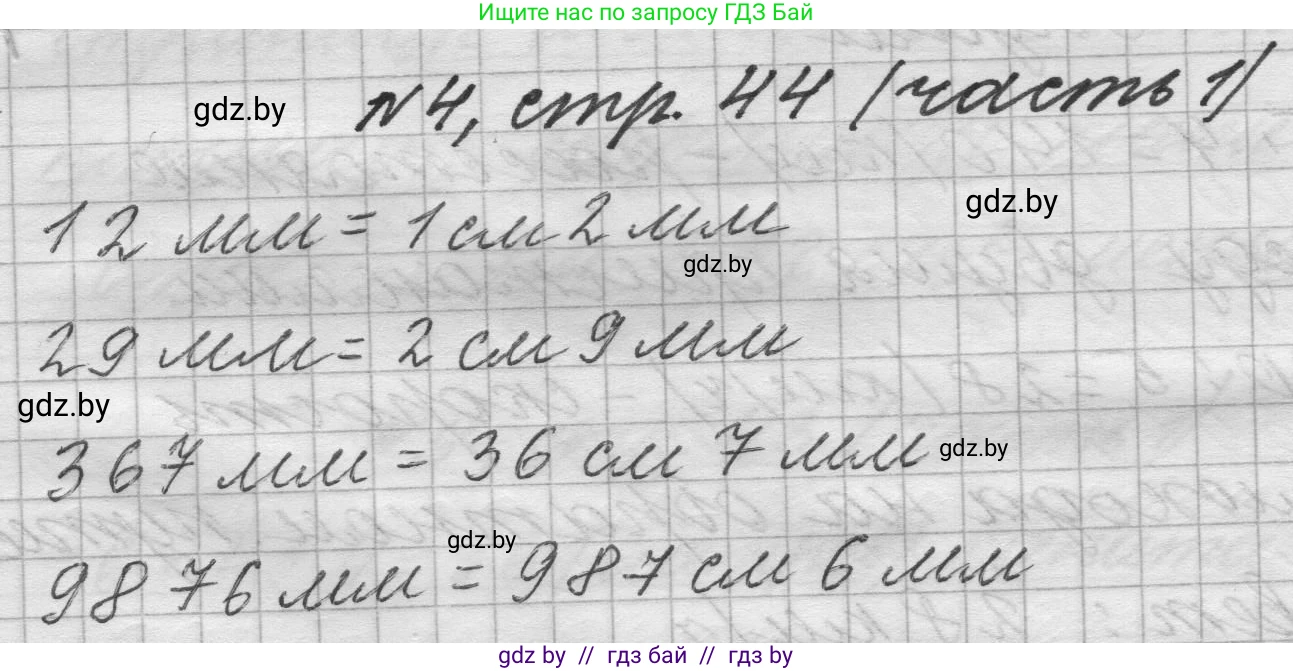 Ищите нас по запросу ГДЗ Бай
gdz.by
№4, стр. 44 (часть 1)
gdz.by
12 мм = 1 см 2 мм
gdz.by
29 мм = 2 см 9 мм
gdz.by
367 мм = 36 см 7 мм
gdz.by
gdz.by
9876 мм = 987 см 6 мм
gdz by // гдз бай // гдз by